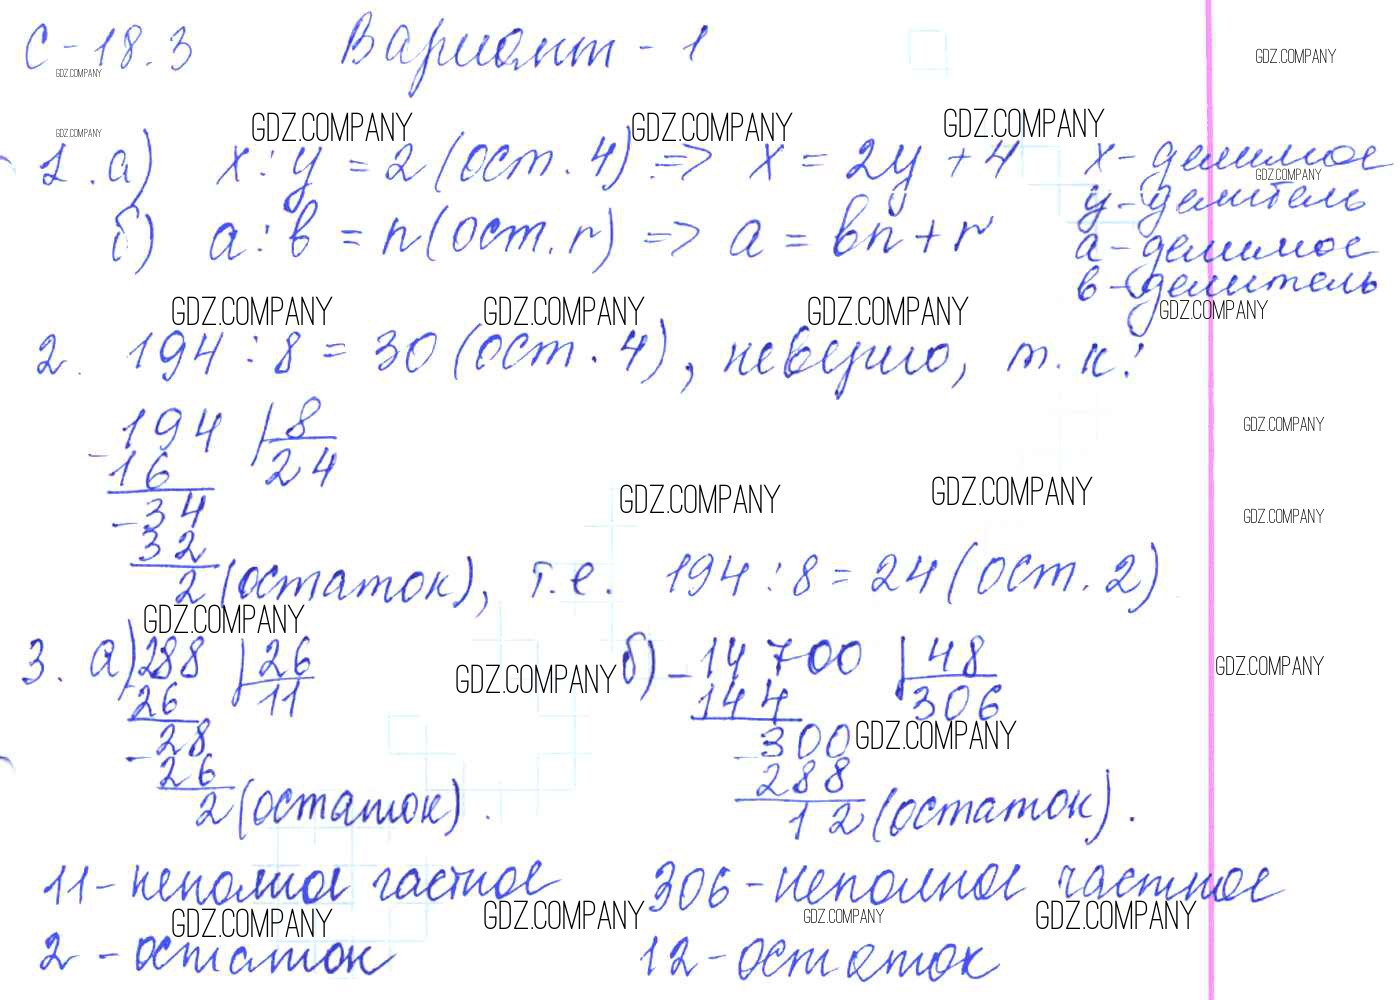 С-18.3 Вариант - 1
GDZ.COMPANY GDZ.COMPANY
GDZ.COMPANY GDZ.COMPANY GDZ.COMPANY GDZ.COMPANY
1. а) x : y = 2 (ост. 4) => x = 2y + 4 x - делимое
GDZ.COMPANY
y - делитель
б) а : в = n (ост. r) => а = вn + r а - делимое
в - делитель
GDZ.COMPANY GDZ.COMPANY GDZ.COMPANY GDZ.COMPANY
2. 194 : 8 = 30 (ост. 4), неверно, т. к:
- 194 | 8 GDZ.COMPANY
16 24
GDZ.COMPANY GDZ.COMPANY
- 34 GDZ.COMPANY
32
2 (остаток), т.е. 194 : 8 = 24 (ост. 2)
GDZ.COMPANY
3. а) 288 | 26 б) - 14700 | 48
GDZ.COMPANY GDZ.COMPANY
26 11 144 306
- 28 - 300 GDZ.COMPANY
26 288
2 (остаток). 12 (остаток).
11 - неполное частное 306 - неполное частное
GDZ.COMPANY GDZ.COMPANY GDZ.COMPANY GDZ.COMPANY
2 - остаток 12 - остаток